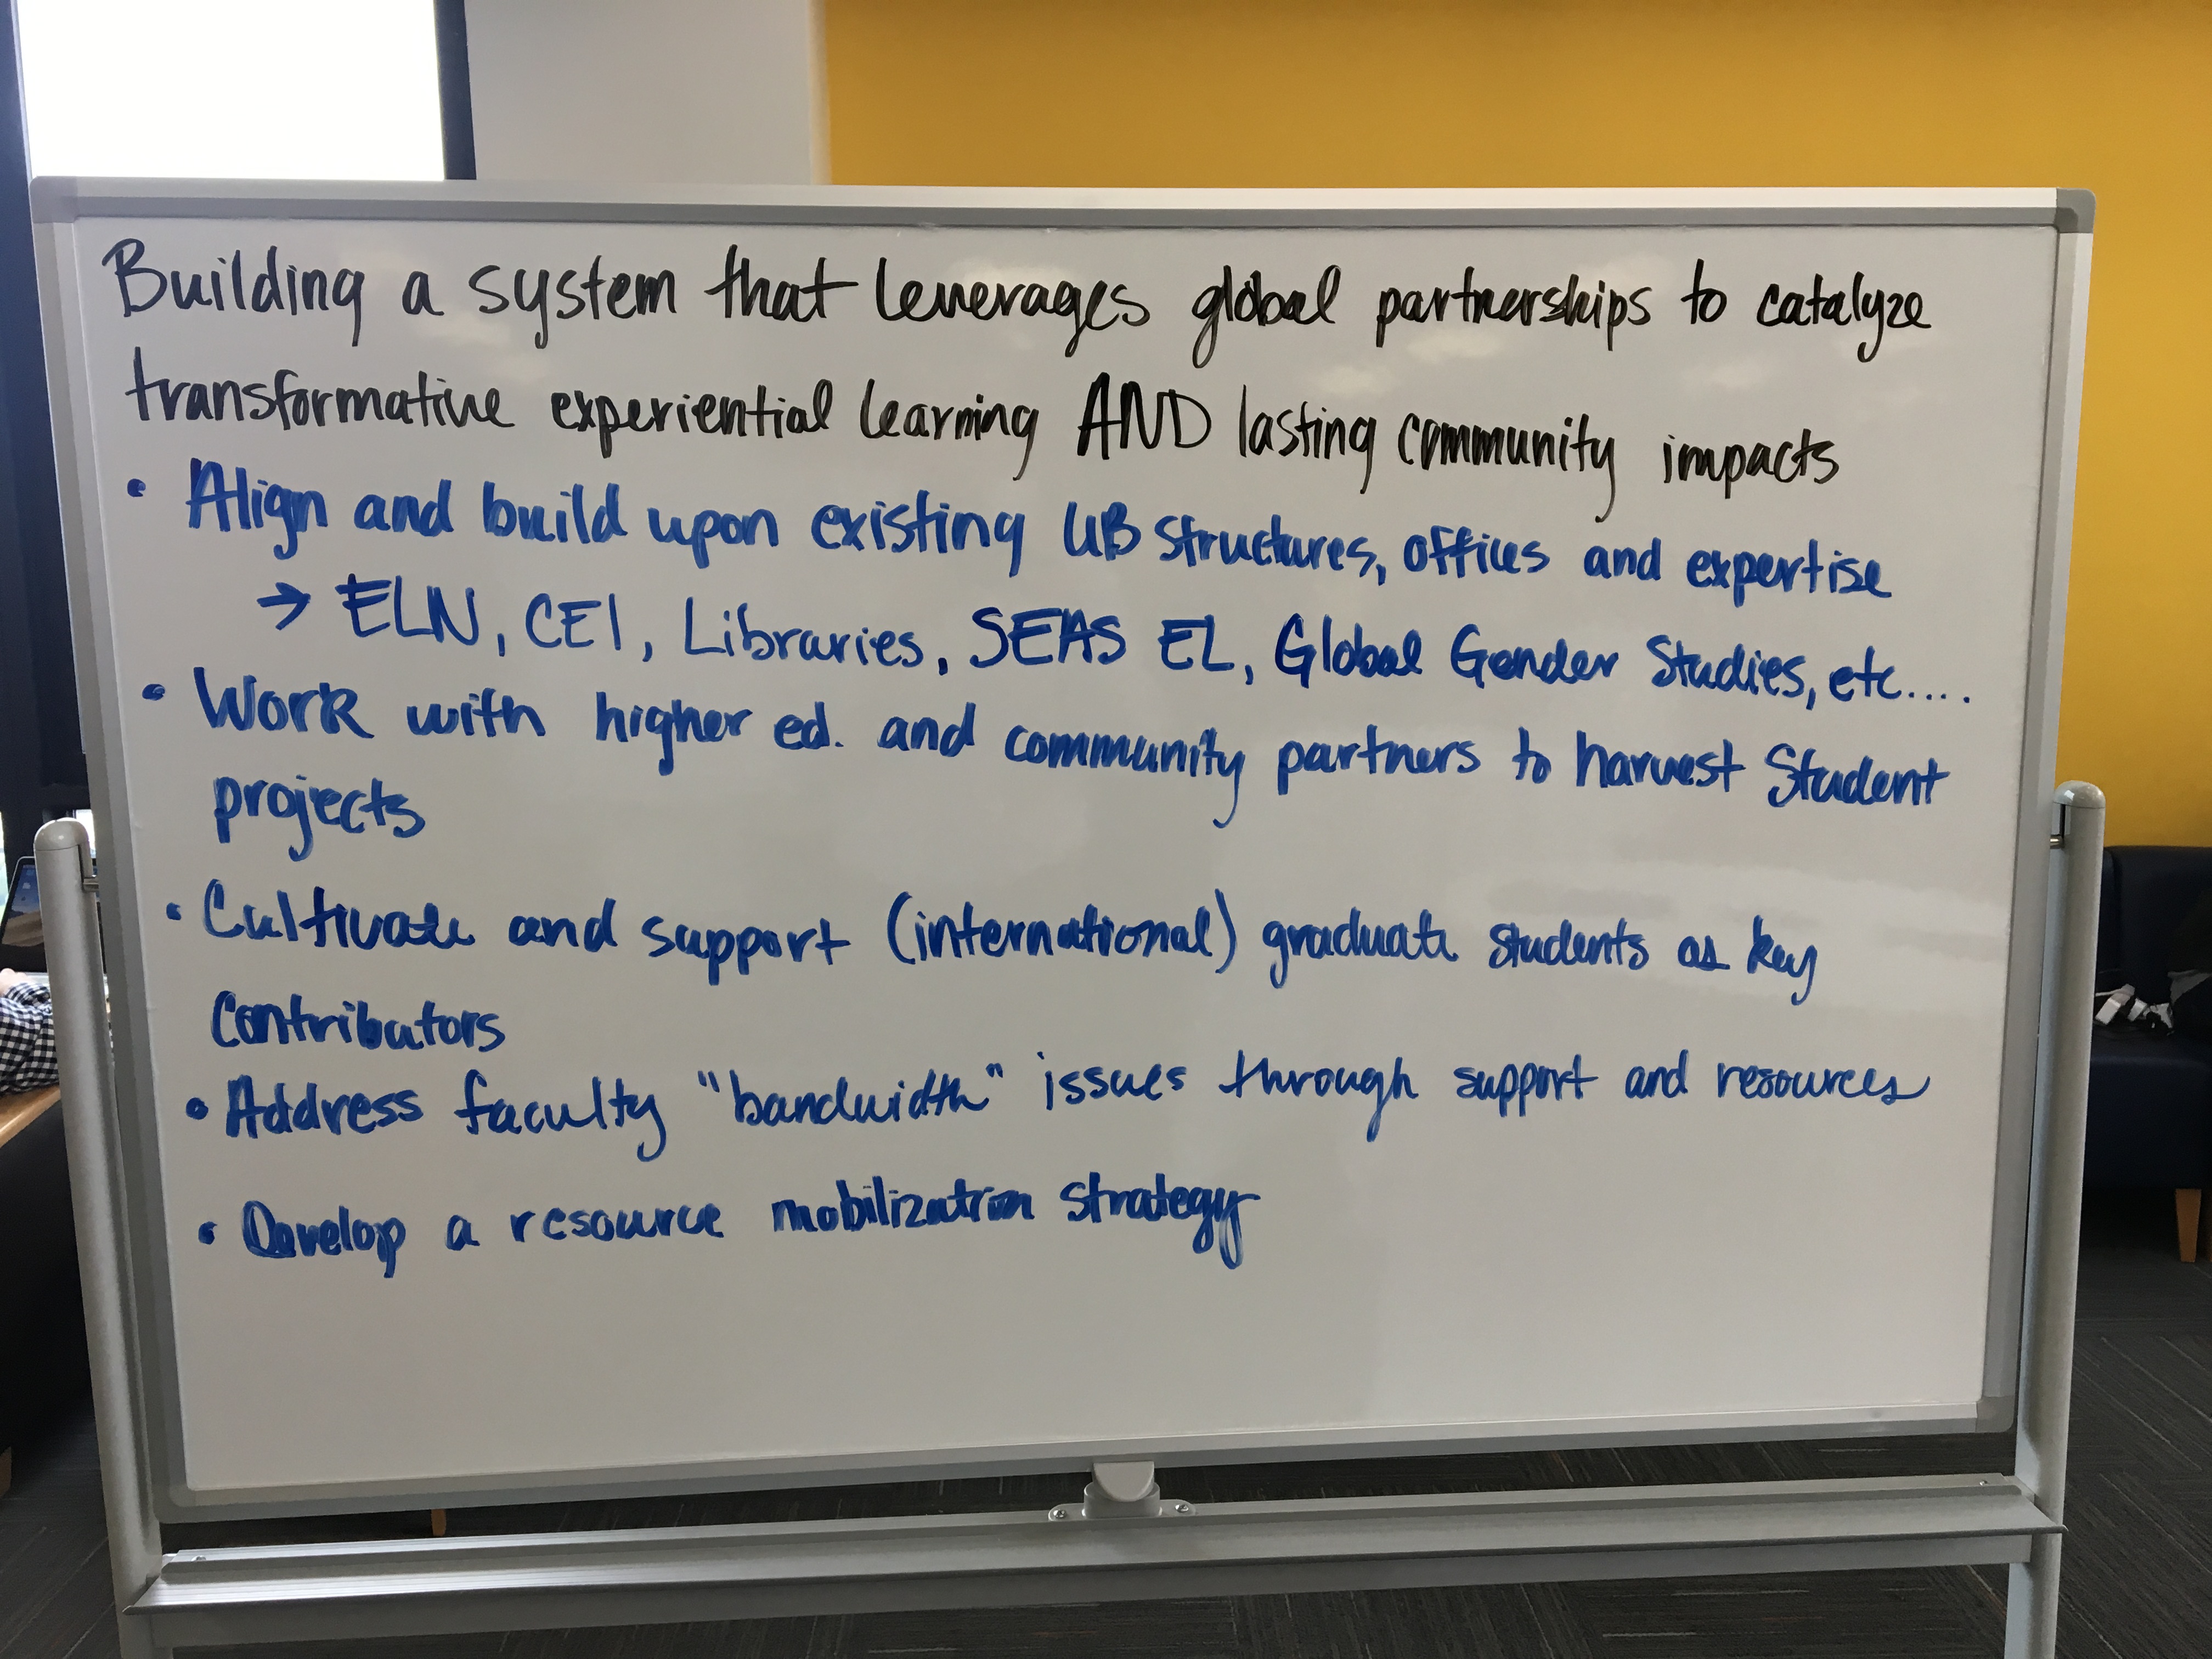 Building a system that leverages global partnerships to catalyze
transformative experiential learning AND lasting community impacts
• Align and build upon existing UB structures, offices and expertise
→ ELN, CEI, Libraries, SEAS EL, Global Gender Studies, etc....
• Work with higher ed. and community partners to harvest student
projects
• Cultivate and support (international) graduate students as key
contributors
• Address faculty "bandwidth" issues through support and resources
• Develop a resource mobilization strategy